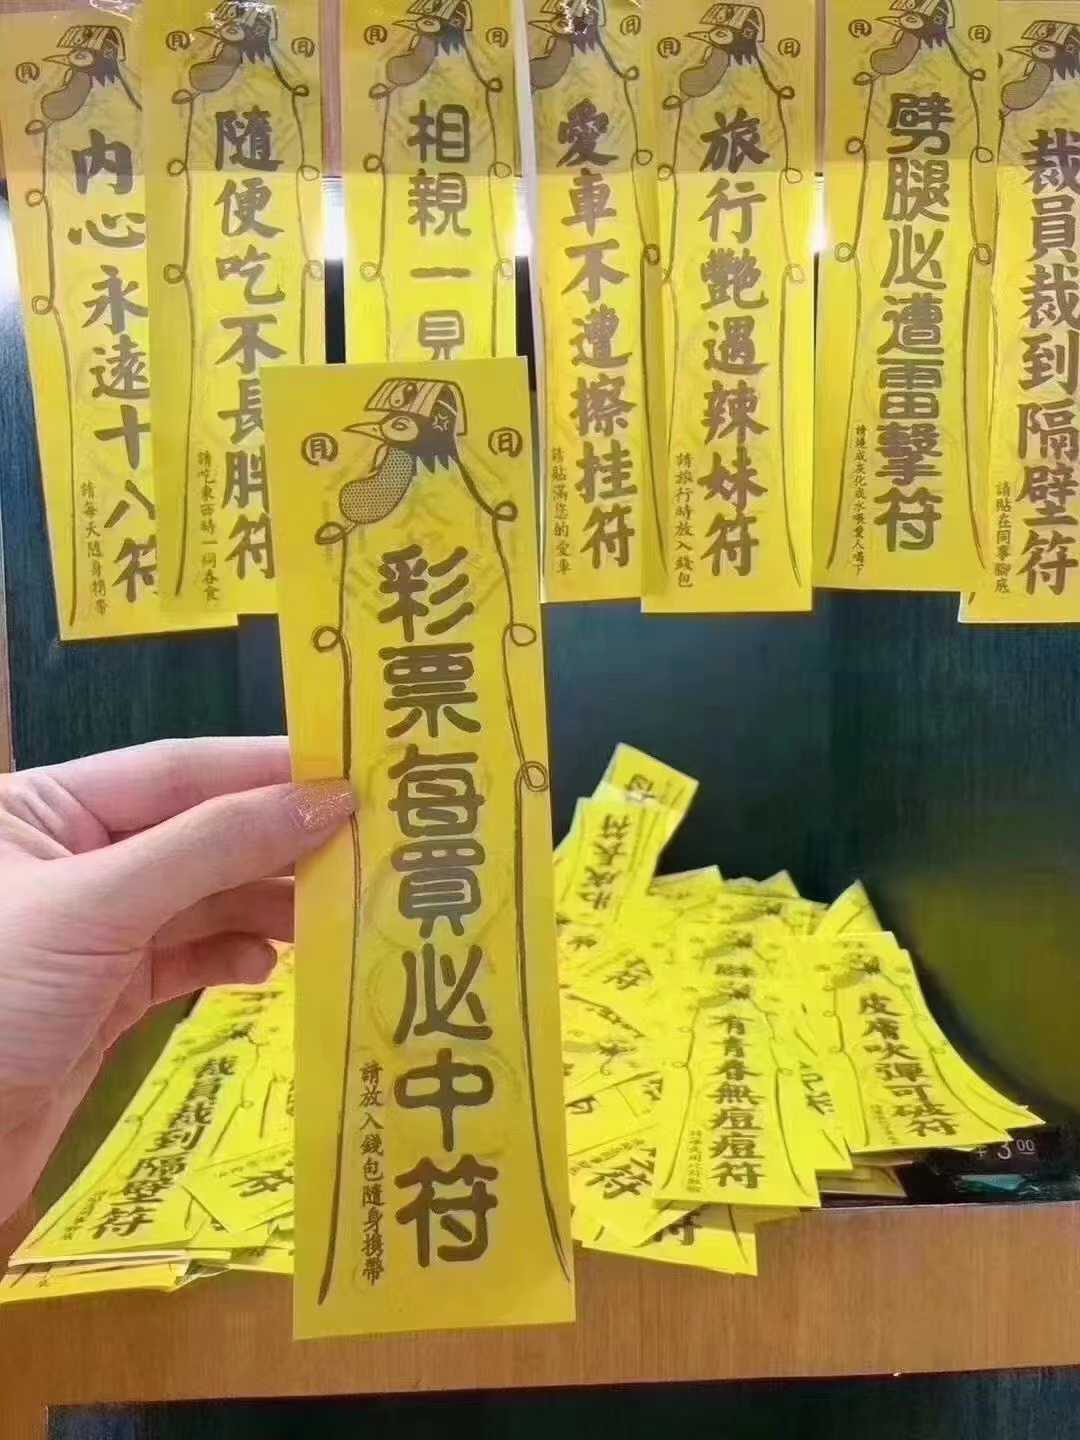 月 日
內心永遠十八符
請每天隨身攜帶
月 日
隨便吃不長胖符
請吃東西時一同吞食
月 日
相親一見
月 日
愛車不遭擦挂符
請貼滿您的愛車
月 日
旅行艷遇辣妹符
請旅行時放入錢包
月 日
劈腿必遭雷擊符
請燒成灰化成水喂愛人喝下
月
裁員裁到隔壁符
請貼在同事腳底
月 日
彩票每買必中符
請放入錢包隨身攜帶
裁員裁到隔壁符
有青春無痘痘符
皮膚吹彈可破符
3.00